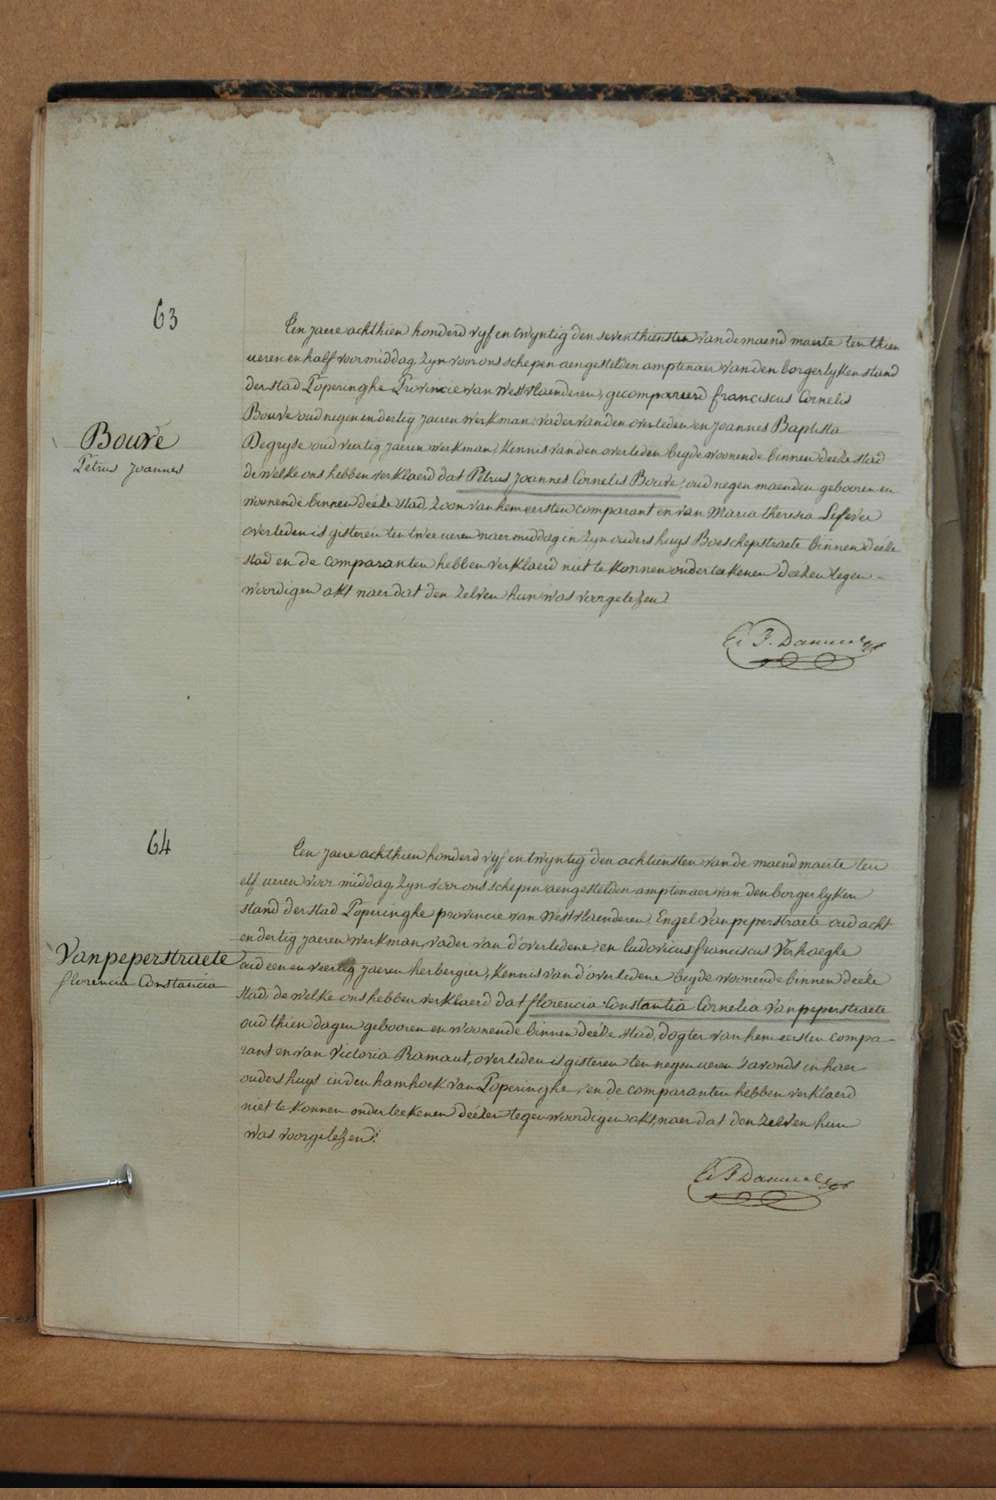 63
Bouvé
Petrus Joannes
Een jaere achthien honderd vyf en twyntig den seventhiensten van de maend maerte ten thien
ueren en half voormiddag zyn voor ons schepen aengestelden amptenaer van den borgerlyken stand
der stad Poperinghe Provincie van Westvlaenderen, gecompareerd franciscus Cornelis
Bouve oud negen en dertig jaeren werkman, vader van den overleden en Joannes Baptista
Degryse oud veertig jaeren werkman, kennis van den overleden beyde woonende binnen deeze stad
de welke ons hebben verklaerd dat Petrus Joannes Cornelis Bouve, oud negen maenden gebooren en
woonende binnen deeze stad, zoon van hem eersten comparant en van Maria theresia Lefever
overleden is gisteren ten twee ueren naermiddag in zyn ouders huys Boeschepstraete binnen deeze
stad en de comparanten hebben verklaerd niet te konnen onderteekenen deezen tegen-
woordigen akt naer dat den zelven hun was voorgelezen.
64
Vanpeperstraete
florencia Constancia
Een jaere achthien honderd vyf en twyntig den achtiensten van de maend maerte ten
elf ueren voor middag, zyn voor ons schepen aengestelden amptenaer van den borgerlyken
stand der stad Poperinghe provincie van Westvlaenderen, Engel Vanpeperstraete oud acht
en dertig jaeren werkman, vader van d'overledene en ludovicus franciscus Verhaeghe
oud een en veertig jaeren herbergier, kennis van d'overledene beyde woonende binnen deeze
stad, de welke ons hebben verklaerd dat florencia Constantia Cornelia Vanpeperstraete
oud thien dagen gebooren en woonende binnen deeze stad, dogter van hem eersten compa-
rant en van Victoria Ramaut, overleden is gisteren ten negen ueren s'avonds in haer
ouders huys in den hamhoek van Poperinghe, en de comparanten hebben verklaerd
niet te konnen onderteekenen deezen tegenwoordigen akt, naer dat den zelven hun
was voorgelezen.